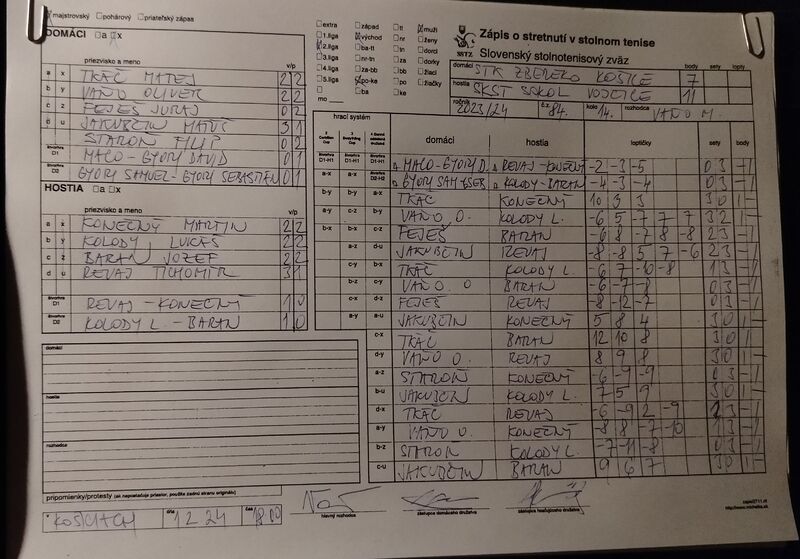 majstrovský pohárový priateľský zápas
DOMÁCI a x
priezvisko a meno v/p
a x TKÁČ MATEJ 2 2
b y VAŇO OLIVER 2 2
c z FEJEŠ JURAJ 0 2
d u JAKUBČIN MATÚŠ 3 1
STAROŇ FILIP 0 2
štvorhra D1 MACO-GYORY DÁVID 0 1
štvorhra D2 GYORY SAMUEL-GYORY SEBASTIÁN 0 1
HOSTIA a x
priezvisko a meno v/p
a x KONEČNÝ MARTIN 2 2
b y KOLODY LUKÁŠ 2 2
c z BARAN JOZEF 2 2
d u REVAJ TICHOMÍR 3 1
štvorhra D1 REVAJ-KONEČNÝ 1 0
štvorhra D2 KOLODY L.-BARAN 1 0
domáci
hostia
rozhodca
pripomienky/protesty (ak nepostačuje priestor, použite zadnú stranu originálu)
v KOŠICIACH dňa 12.24 čas 18.00
extra západ tt muži
1.liga východ nr ženy
2.liga ba-tt tn dorci
3.liga nr-tn za dorky
4.liga za-bb bb žiaci
5.liga po-ke po žiačky
ba ke
mo
SSTZ
Zápis o stretnutí v stolnom tenise
Slovenský stolnotenisový zväz
body sety lopty
domáci STK ZBEREKO KOŠICE 7
hostia SKST SOKOL VOJČICE 11
ročník 2023/24 č.z. 84. kolo 14. rozhodca VAŇO M
hrací systém
domáci hostia loptičky sety body
štvorhra D1-H1 štvorhra D1-H1 štvorhra D1-H1 MACO-GYORY D. REVAJ-KONEČNÝ -2 -3 -5 0 3 - 1
a-x a-x štvorhra D2-H2 GYORY SAM-GSEB. KOLODY-BARAN -4 -3 -4 0 3 - 1
b-y b-y a-x TKÁČ KONEČNÝ 10 3 3 3 0 1 -
a-y c-z b-y VAŇO O. KOLODY L. -6 5 -7 7 7 3 2 1 -
b-x b-x c-z FEJEŠ BARAN -6 8 -7 8 -8 2 3 - 1
a-z d-u JAKUBČIN REVAJ -8 -8 5 7 -6 2 3 - 1
c-y b-x TKÁČ KOLODY L. -6 7 -10 -8 1 3 - 1
b-z c-y VAŇO O. BARAN -6 -7 -8 0 3 - 1
c-x d-z FEJEŠ REVAJ -8 -12 -7 0 3 - 1
a-y a-u JAKUBČIN KONEČNÝ 5 8 4 3 0 1 -
c-x TKÁČ BARAN 12 10 8 3 0 1 -
d-y VAŇO O. REVAJ 8 9 8 3 0 1 -
a-z STAROŇ KONEČNÝ -6 -9 -9 0 3 - 1
b-u JAKUBČIN KOLODY L. 7 5 9 3 0 1 -
d-x TKÁČ REVAJ -6 -9 2 -9 1 3 - 1
a-y VAŇO O. KONEČNÝ -8 8 -7 -10 1 3 - 1
b-z STAROŇ KOLODY L. -7 -11 -8 0 3 - 1
c-u JAKUBČIN BARAN 9 6 7 3 0 1 -
hlavný rozhodca zástupca domáceho družstva zástupca hosťujúceho družstva